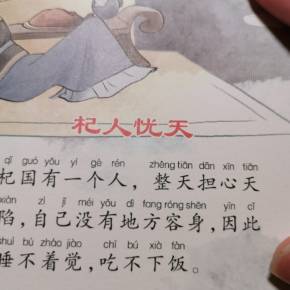 杞人忧天
qǐ guó yǒu yí gè rén zhěng tiān dān xīn tiān
杞国有一个人，整天担心天
xiàn zì jǐ méi yǒu dì fang róng shēn yīn cǐ
陷，自己没有地方容身，因此
shuì bù zháo jiào chī bú xià fàn
睡不着觉，吃不下饭。